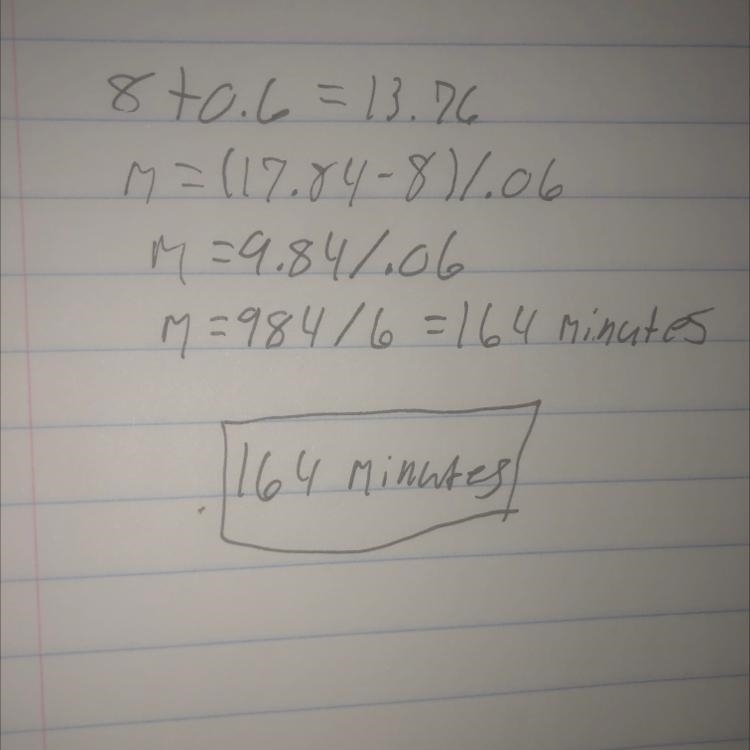 8+0.6 = 13.76
M = (17.84-8)/.06
M = 9.84/.06
M = 984/6 = 164 minutes
164 minutes